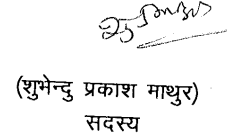 (शुभेन्दु प्रकाश माथुर)
सदस्य